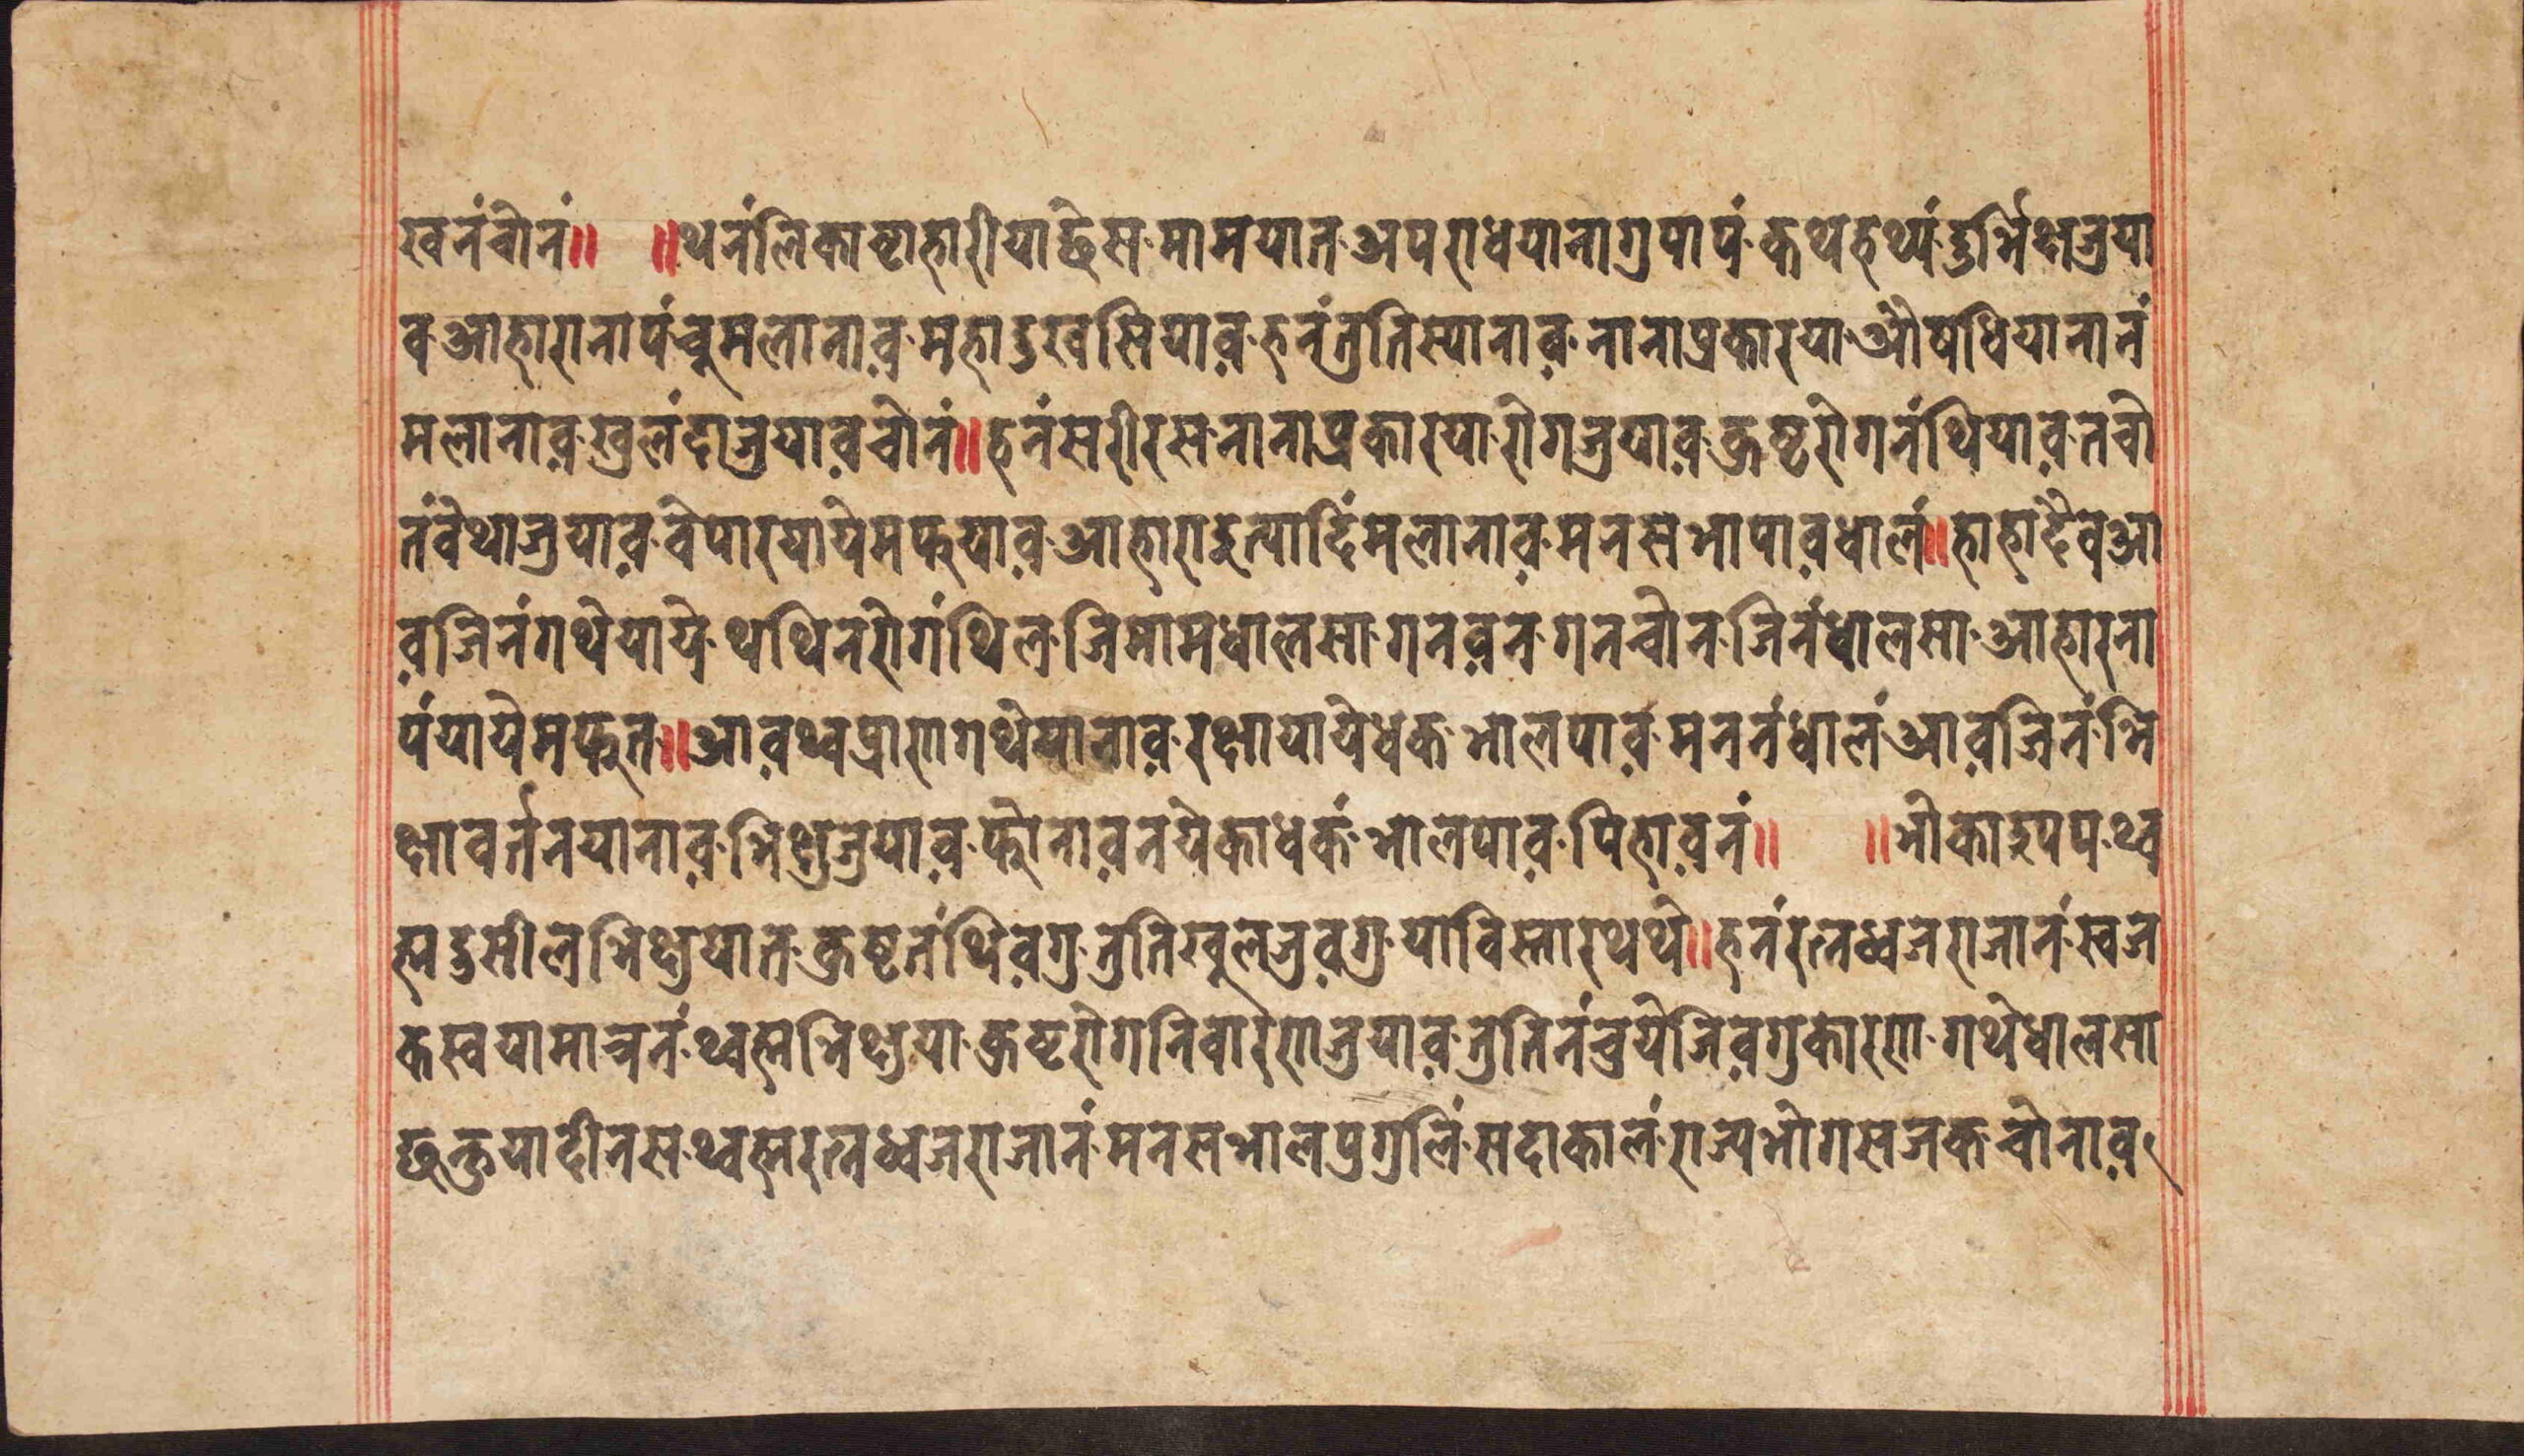 खनंचोनं॥ ॥थनंलिकाष्टाहारीयाछेस·मामयात·अपराधयानागुपापं·कथहथ्यं·दुर्भिक्षजुया
व·आहारानापंचूमलानाव़·महादुखसियाव़·हनंतुतिस्यानाव़·नानाप्रकारया·औषधियानानं
मलानाव़·खुलंदाजुयाव़चोनं॥हनंसरीरस·नानाप्रकारया·रोगजुयाव़·कुष्टरोगनंथियाव़·तचो
तंवेथाजुयाव़·वेपारयायेमफयाव़·आहाराइत्यादिंमलानाव़·मनसभापाव़धालं॥हाहादैवआ
व़जिनंगथेयाये·थथिनरोगंथिल·जिमामधालसा·गनव़न·गनचोन·जिनंधालसा·आहारना
पंयायेमफुत॥आव़थ्वप्राणगथेयानाव़·रक्षायायेधकभालपाव़·मननंधालं·आव़जिनंभि
क्षावर्तनयानाव़·भिक्षुजुयाव़·फोनाव़नयेकाधकंभालपाव़·पिहाव़नं॥ ॥भोकाउपप·थ्व
ह्मदुसीलभिक्षुयात·कुष्टनंथिव़गु·तुतिखुलजुव़गु·याविस्तारथथे॥हनंरत्नध्वजराजानं·स्वज
कस्वयामात्रनं·थ्वह्मभिक्षुया·कुष्टरोगनिवारणजुयाव़·तुतिनंचुयेजिव़गुकारण·गथेधालसा
छन्हुयादीनस·थ्वह्मरत्नध्वजराजानं·मनसभालपुगुलिं·सदाकालंराज्यभोगसजकचोनाव़